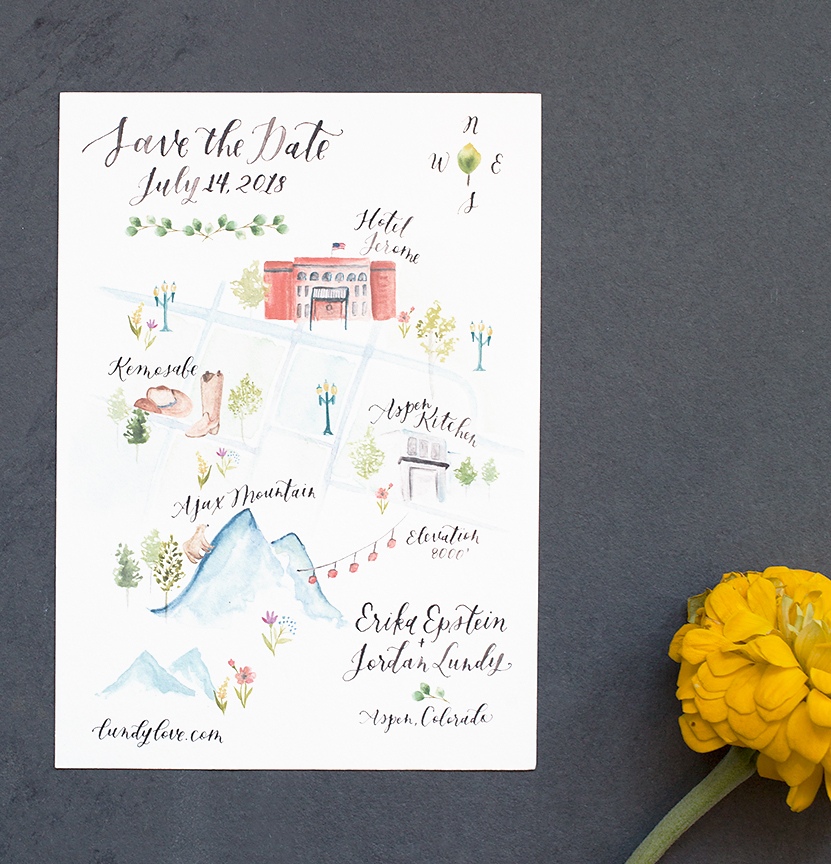 Save the Date
July 14, 2018
N
W E
S
Hotel
Jerome
Kemosabe
Aspen
Kitchen
Ajax Mountain
Elevation
8000'
Erika Epstein
+
Jordan Lundy
Aspen, Colorado
lundylove.com